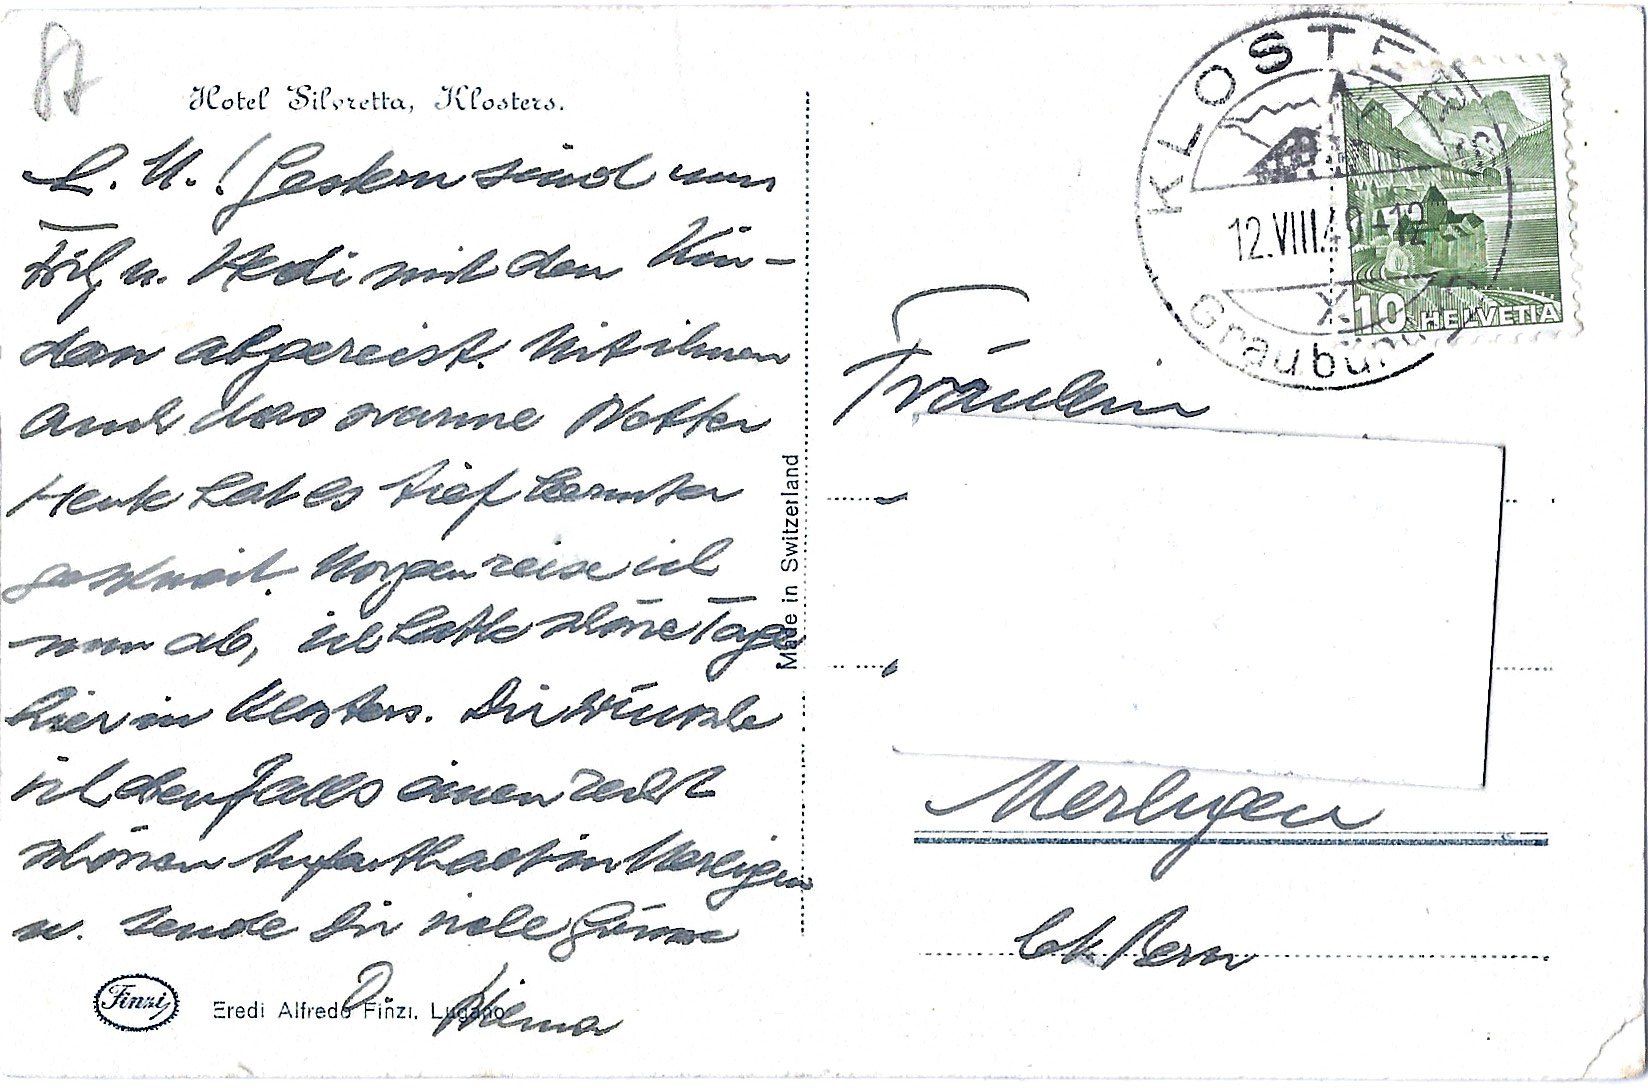 87
Hotel Silvretta, Klosters.
L. M.! Gestern sind nun
u. Hedi mit den Kin-
dern abgereist. Mit ihnen
auch das warme Wetter
Heute hat es tief herunter
geschneit. Morgen reise ich
nun ab, ich hatte schöne Tage
hier in Klosters. Dir wünsche
ich ebenfalls einen recht
schönen Aufenthalt in Merligen
u. sende Dir viele Grüsse
D. Wilma
Finzi
Eredi Alfredo Finzi, Lugano
Made in Switzerland
KLOSTERS
12.VIII.49-12
X
Graubünden
10 HELVETIA
Fräulein
Merligen
Ct Bern